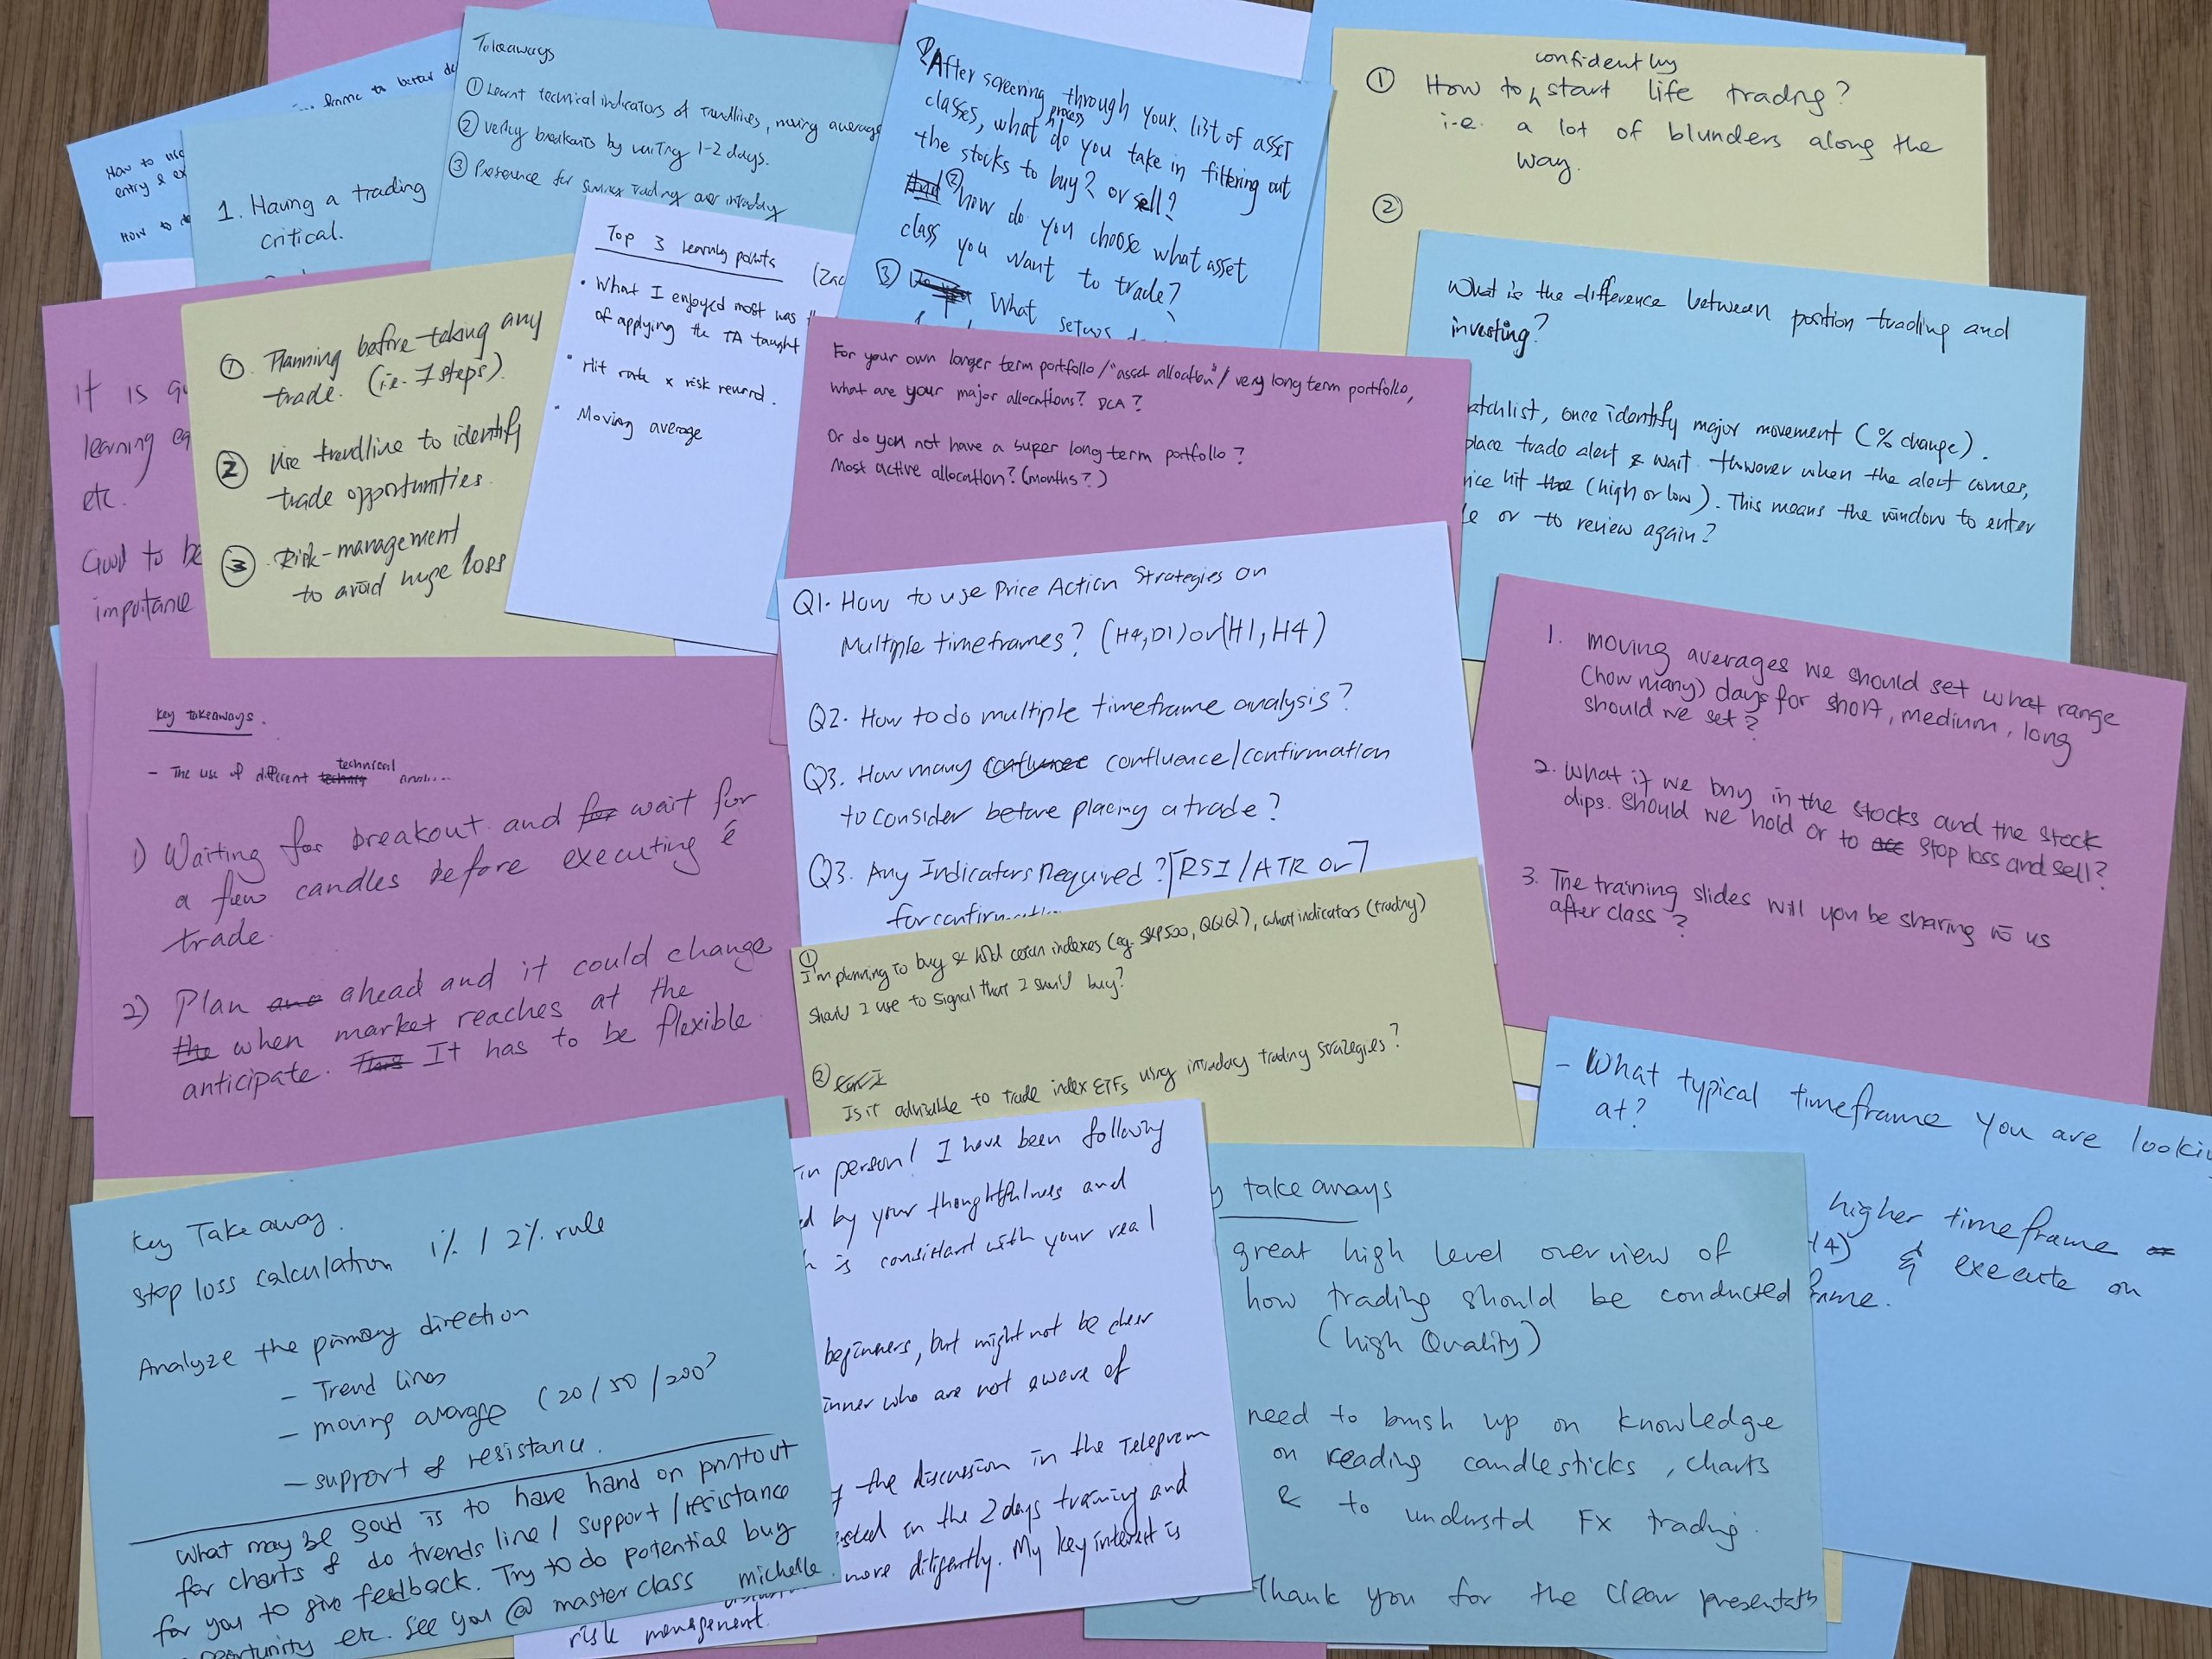 How to use
entry & ex
How to
frame to better
1. Having a trading
critical.
Takeaways
① Learnt technical indicators of trendlines, moving average
② Verify breakouts by waiting 1-2 days.
③ Preference for swing trading over intraday
After screening through your list of asset
classes, what process do you take in filtering out
the stocks to buy? or sell?
② how do you choose what asset
class you want to trade?
③ What setups
confidently
① How to start life trading?
i.e. a lot of blunders along the
way.
②
What is the difference between position trading and
investing?
atchlist, once identify major movement (% change).
place trade alert & wait. However when the alert comes,
ice hit the (high or low). This means the window to enter
or to review again?
it is
learning
etc.
Good to be
importance
① Planning before taking any
trade. (i.e. 7 steps).
② Use trendline to identify
trade opportunities.
③ Risk-management
to avoid huge loss
Top 3 learning points
(Zac
• What I enjoyed most was
of applying the TA taught
• Hit rate x risk reward.
• Moving average
For your own longer term portfolio/"asset allocation"/very long term portfolio,
what are your major allocations? DCA?
Or do you not have a super long term portfolio?
Most active allocation? (months?)
Q1. How to use Price Action Strategies on
Multiple timeframes? (H4, D1) or (H1, H4)
Q2. How to do multiple timeframe analysis?
Q3. How many confluence/confirmation
to consider before placing a trade?
Q3. Any Indicators Required? [RSI/ATR or]
for
1. moving averages we should set what range
(how many) days for short, medium, long
should we set?
2. What if we buy in the stocks and the stock
dips. Should we hold or to stop loss and sell?
3. The training slides will you be sharing to us
after class?
Key takeaways.
- The use of different technical
1) Waiting for breakout and wait for
a few candles before executing
trade.
2) Plan ahead and it could change
the when market reaches at the
anticipate. It has to be flexible.
①
I'm planning to buy & hold certain indexes (eg. S&P500, QQQ), what indicators (trading)
should I use to signal that I should buy?
②
Is it advisable to trade index ETFs using intraday trading strategies?
- What typical timeframe you are looki
at?
higher timeframe
& execute on
Key Take away.
stop loss calculation 1% / 2% rule
Analyze the primary direction
- Trend lines
- moving average (20/50/200)
- support & resistance.
What may be good is to have hand on printout
for charts & do trends line / support / resistance
for you to give feedback. Try to do potential buy
opportunity etc. See you @ master class michelle.
in person! I have been following
by your thoughtfulness and
is consistant with your real
beginners, but might not be clear
who are not aware of
the discussion in the Telegram
in the 2 days training and
more diligently. My key interest is
risk management.
take aways
great high level overview of
how trading should be conducted
(high Quality)
need to brush up on knowledge
on reading candlesticks, charts
& to understd FX trading.
Thank you for the clear